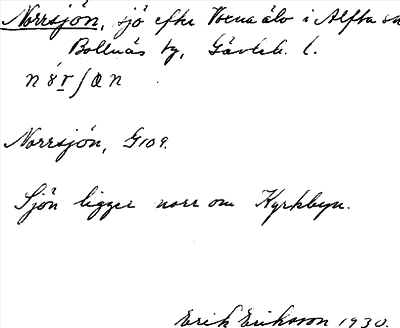 Norrsjön, sjö efter Voxnaälv i Alfta sn
Bollnäs tg, Gävleb. l.
Norrsjön, G109.
Sjön ligger norr om Kyrkbyn.
Erik Eriksson 1930.